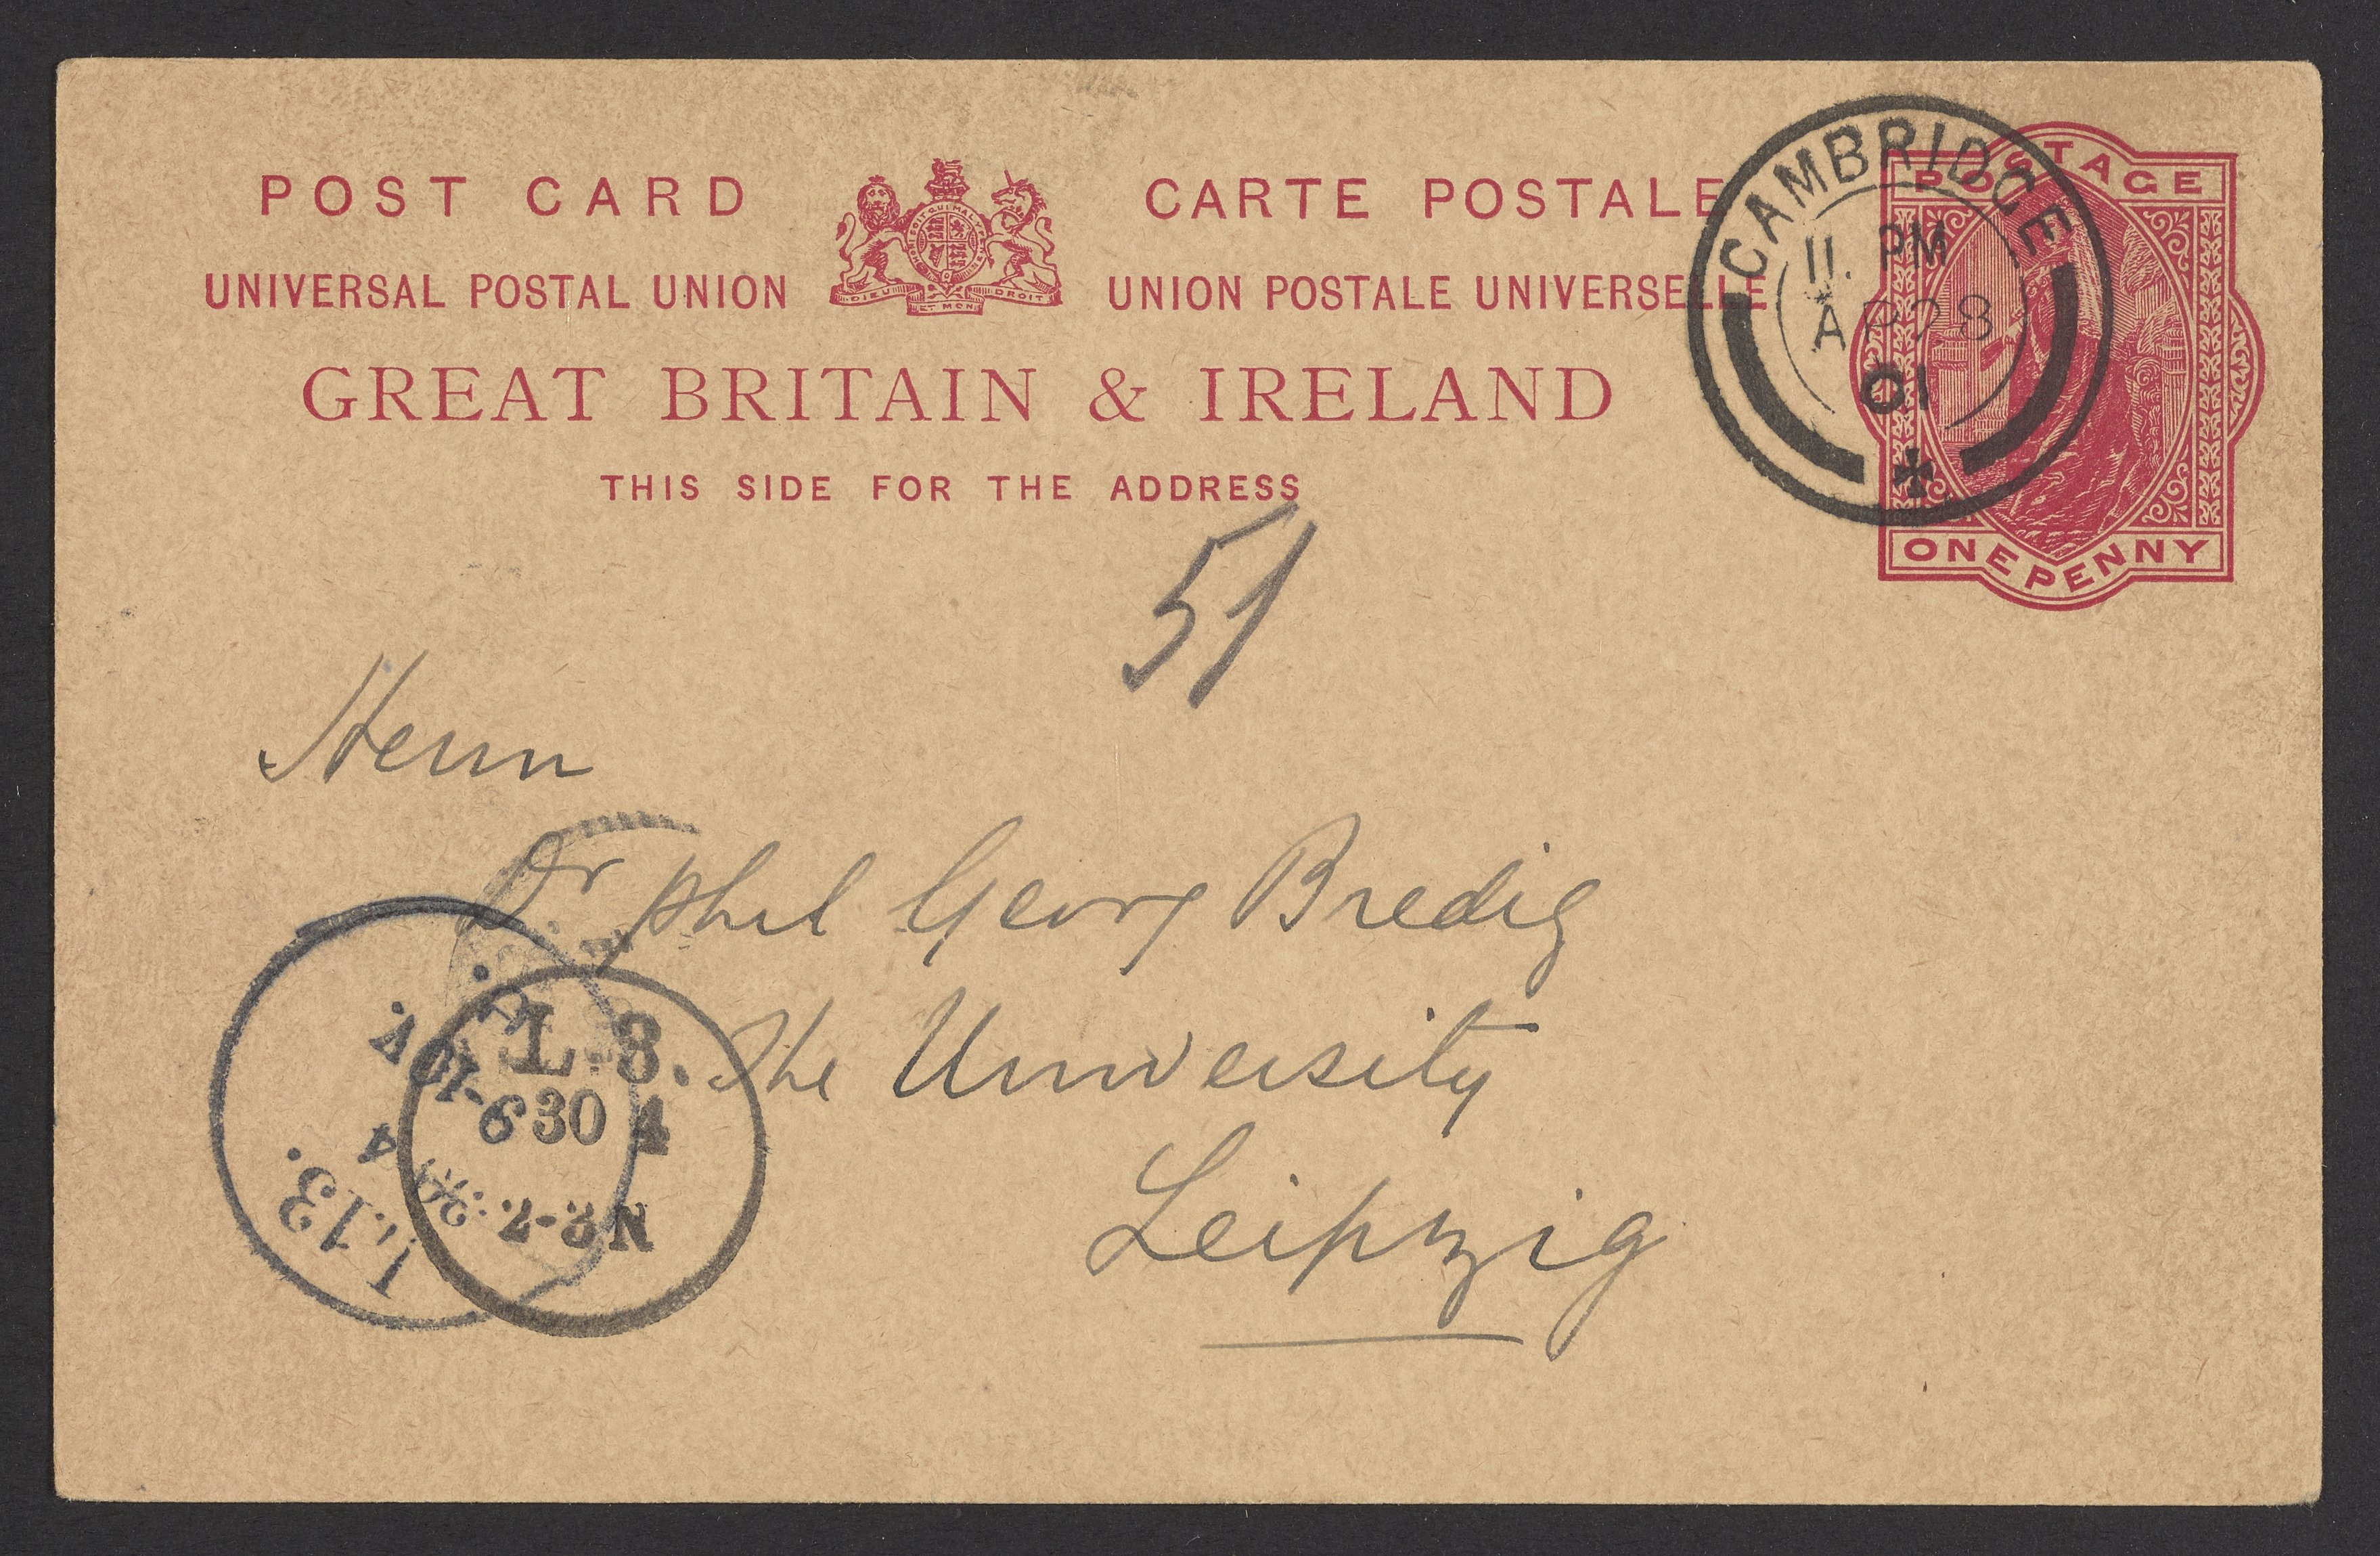 POST CARD CARTE POSTALE
UNIVERSAL POSTAL UNION UNION POSTALE UNIVERSELLE
GREAT BRITAIN & IRELAND
THIS SIDE FOR THE ADDRESS
DIEU ET MON DROIT
POSTAGE
ONE PENNY
CAMBRIDGE
11. PM
AP 28
01
51
Herrn
Dr. phil Georg Bredig
The University
Leipzig
L. 3.
30 4
7-8 N
L.13.
9-10 V.